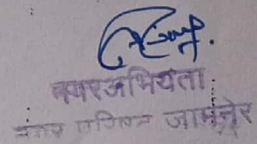 नगरअभियंता
नगर परिषद जामनेर